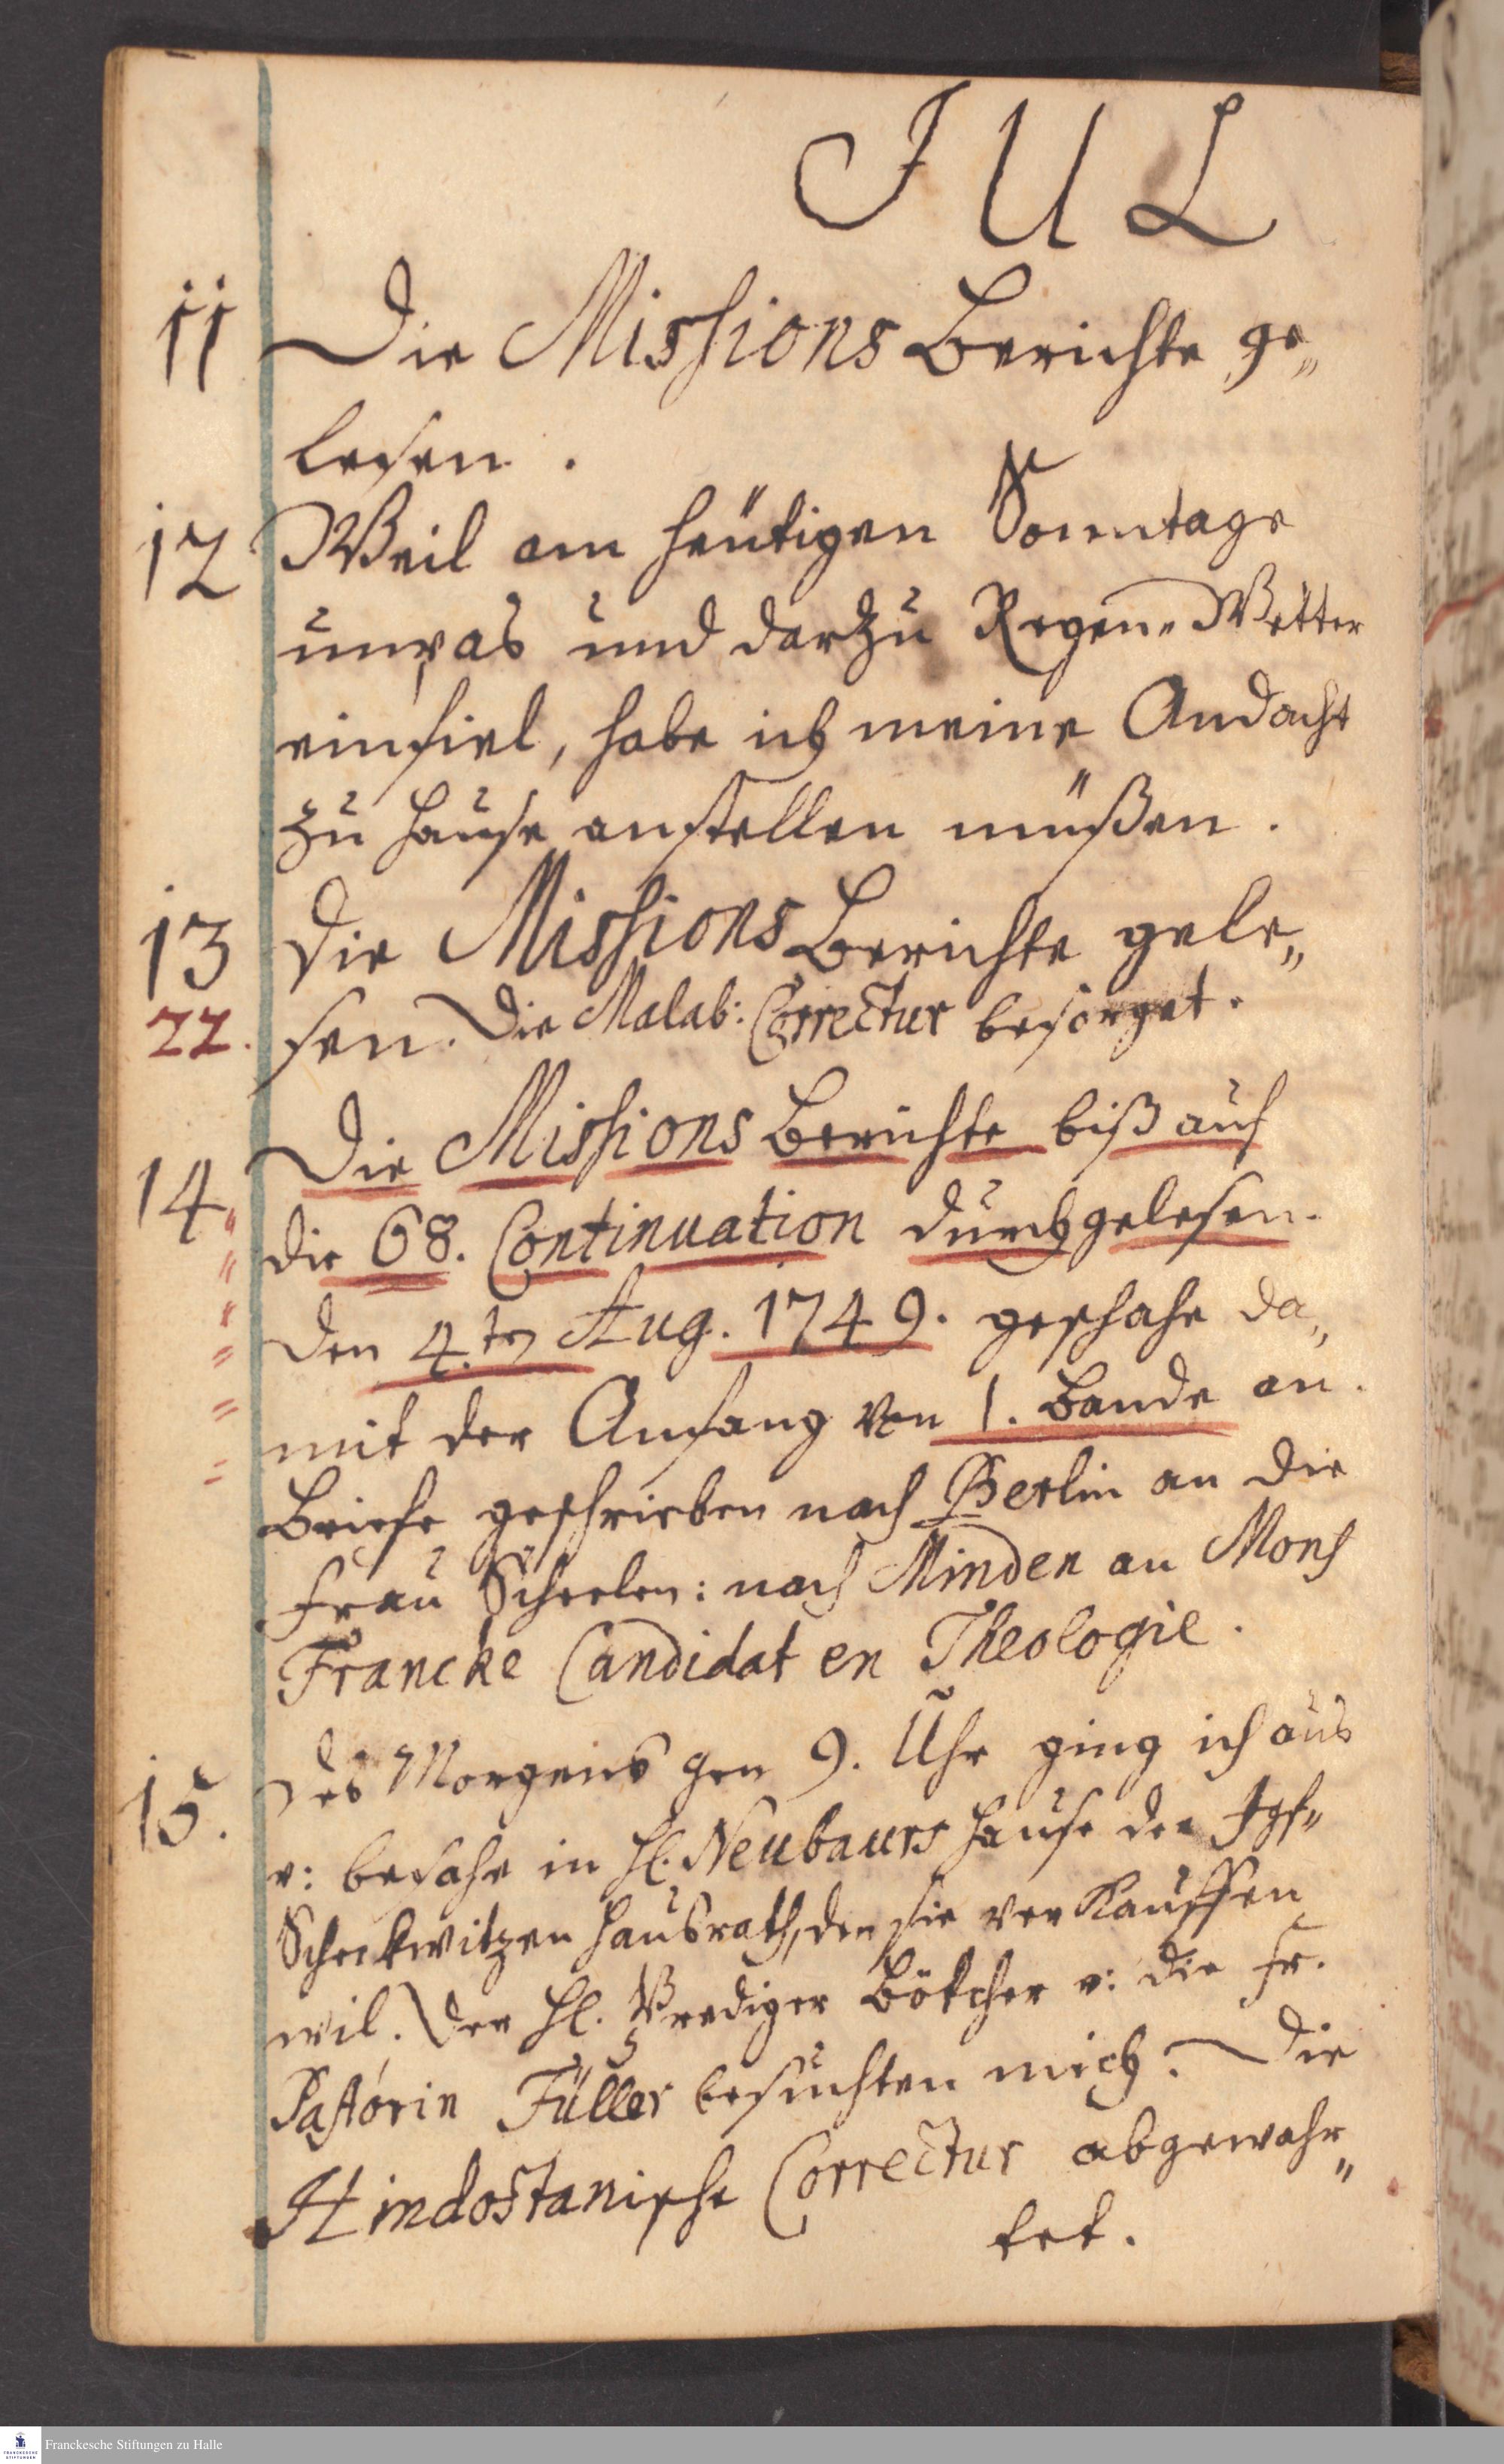 JUL
11 Die Missions Berichte ge„
lesen.
12 Weil am heütigen Sonntage
unpas und darzu Regen„Wetter
einfiel, habe ich meine Andacht
zu Hause anstellen müßen.
13 Die Missions Berichte gele„
22. sen. Die Malab: Correctur besorget.
14. Die Missions Berichte biß auf
die 68. Continuation durchgelesen.
Den 4.ten Aug. 1749. geschahe da„
mit der Anfang von 1. Bande an.
Briefe geschrieben nach Berlin an die
Frau Scheelen: nach Minden an Mons
Francke Candidat en Theologie.
15. Des Morgens gen 9. Uhr ging ich aus
v: besahe in H. Neubaurs Hause der Jgf„
Scheckwitzen Hausrath, den sie verkauffen
wil. Der H. Prediger Bötcher v: die Fr.
Pastorin Füller besuchten mich. Die
Hindostanische Correctur abgewahr„
tet.
Franckesche Stiftungen zu Halle
FRANCKESCHE
STIFTUNGEN